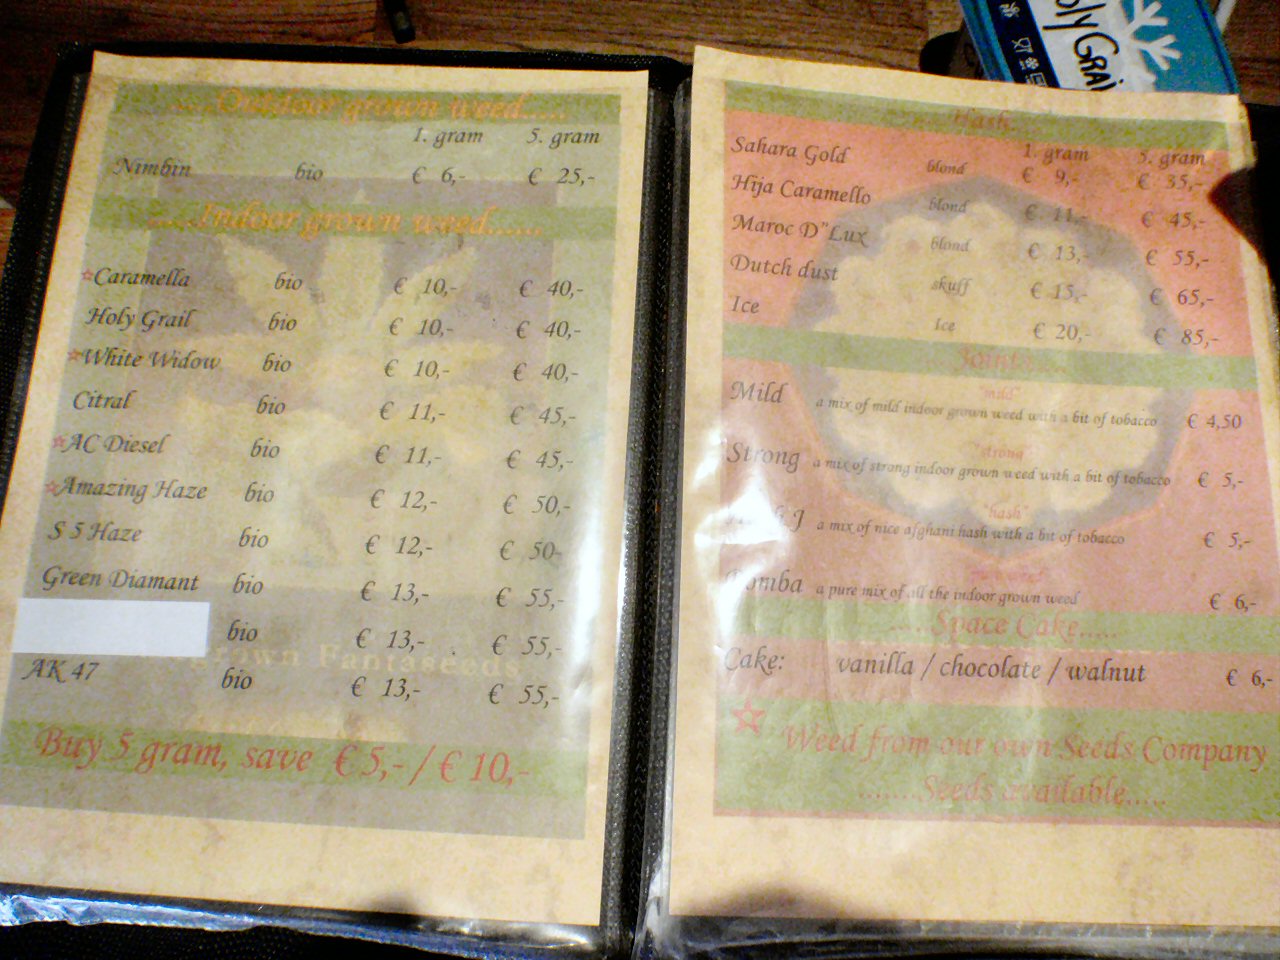 .....Outdoor grown weed.....
1. gram 5. gram
Nimbin bio € 6,- € 25,-
......Indoor grown weed......
☆Caramella bio € 10,- € 40,-
Holy Grail bio € 10,- € 40,-
☆White Widow bio € 10,- € 40,-
Citral bio € 11,- € 45,-
☆AC Diesel bio € 11,- € 45,-
☆Amazing Haze bio € 12,- € 50,-
S 5 Haze bio € 12,- € 50-
Green Diamant bio € 13,- € 55,-
bio € 13,- € 55,-
Fantaseeds
AK 47 bio € 13,- € 55,-
Buy 5 gram, save € 5,- / € 10,-
Holy Grai
.....Hash.....
1. gram 5. gram
Sahara Gold blond € 9,- € 35,-
Hija Caramello blond € 11,- € 45,-
Maroc D"Lux blond € 13,- € 55,-
Dutch dust skuff € 15,- € 65,-
Ice Ice € 20,- € 85,-
.....Joints.....
"mild"
Mild a mix of mild indoor grown weed with a bit of tobacco € 4,50
"strong"
Strong a mix of strong indoor grown weed with a bit of tobacco € 5,-
"hash"
J a mix of nice afghani hash with a bit of tobacco € 5,-
a pure mix of all the indoor grown weed € 6,-
......Space Cake.....
Cake: vanilla / chocolate / walnut € 6,-
☆ Weed from our own Seeds Company
.......Seeds available.....